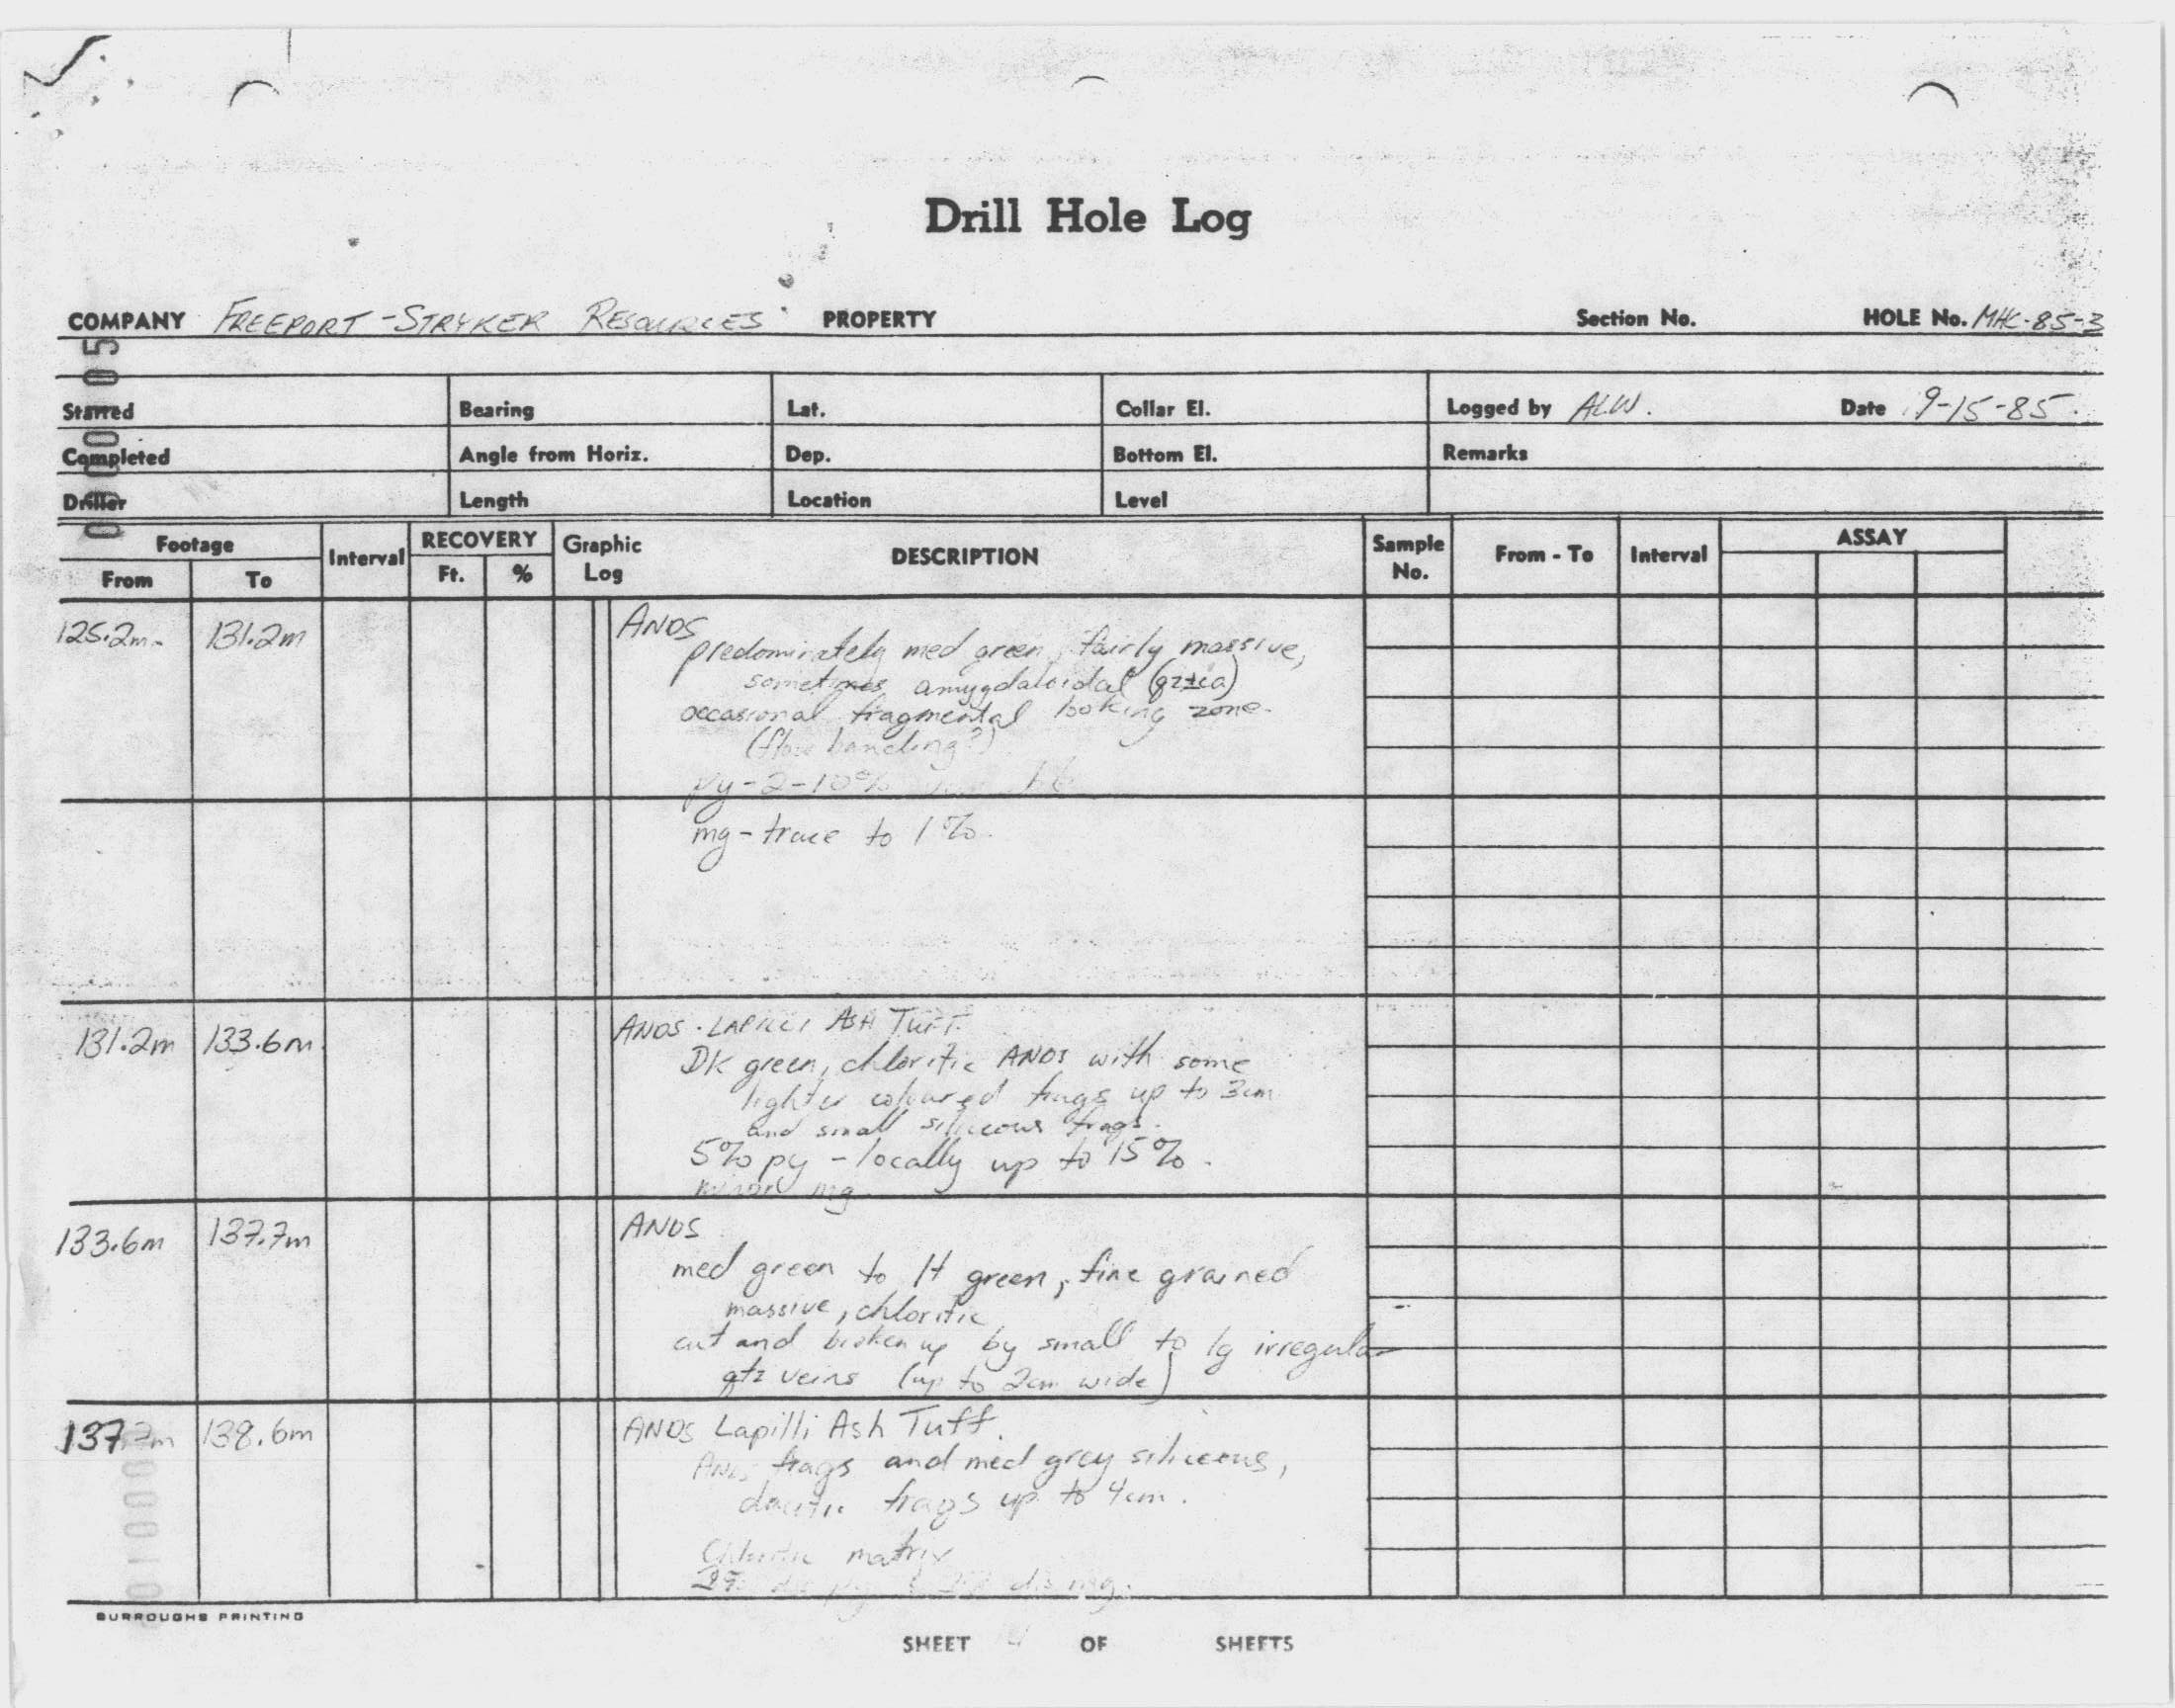 Drill Hole Log
COMPANY FREEPORT-STRYKER RESOURCES PROPERTY Section No. HOLE No. MHC-85-3
Started Bearing Lat. Collar El. Logged by ALW. Date 9-15-85.
Completed Angle from Horiz. Dep. Bottom El. Remarks
Driller Length Location Level
Footage Interval RECOVERY Graphic Log DESCRIPTION Sample No. From - To Interval ASSAY
From To Ft. %
125.2m 131.2m ANDS
predominately med green, fairly massive,
sometimes amygdaloidal (qz±ca)
occasional fragmental looking zone.
(flow banding?)
py-2-10%
mg-trace to 1%.
131.2m 133.6m. ANDS. LAPILLI ASH TUFF.
DK green, chloritic ANDS with some
lighter coloured frags up to 3cm
and small siliceous frags.
5% py - locally up to 15%.
minor mg
133.6m 137.7m ANDS
med green to lt green, fine grained
massive, chloritic
cut and broken up by small to lg irregular
qtz veins (up to 2cm wide)
137.7m 138.6m ANDS Lapilli Ash Tuff.
ANDS frags and med grey siliceous,
dacitic frags up to 4cm.
Chloritic matrix
dis mg.
BURROUGHS PRINTING
SHEET 4 OF SHEETS